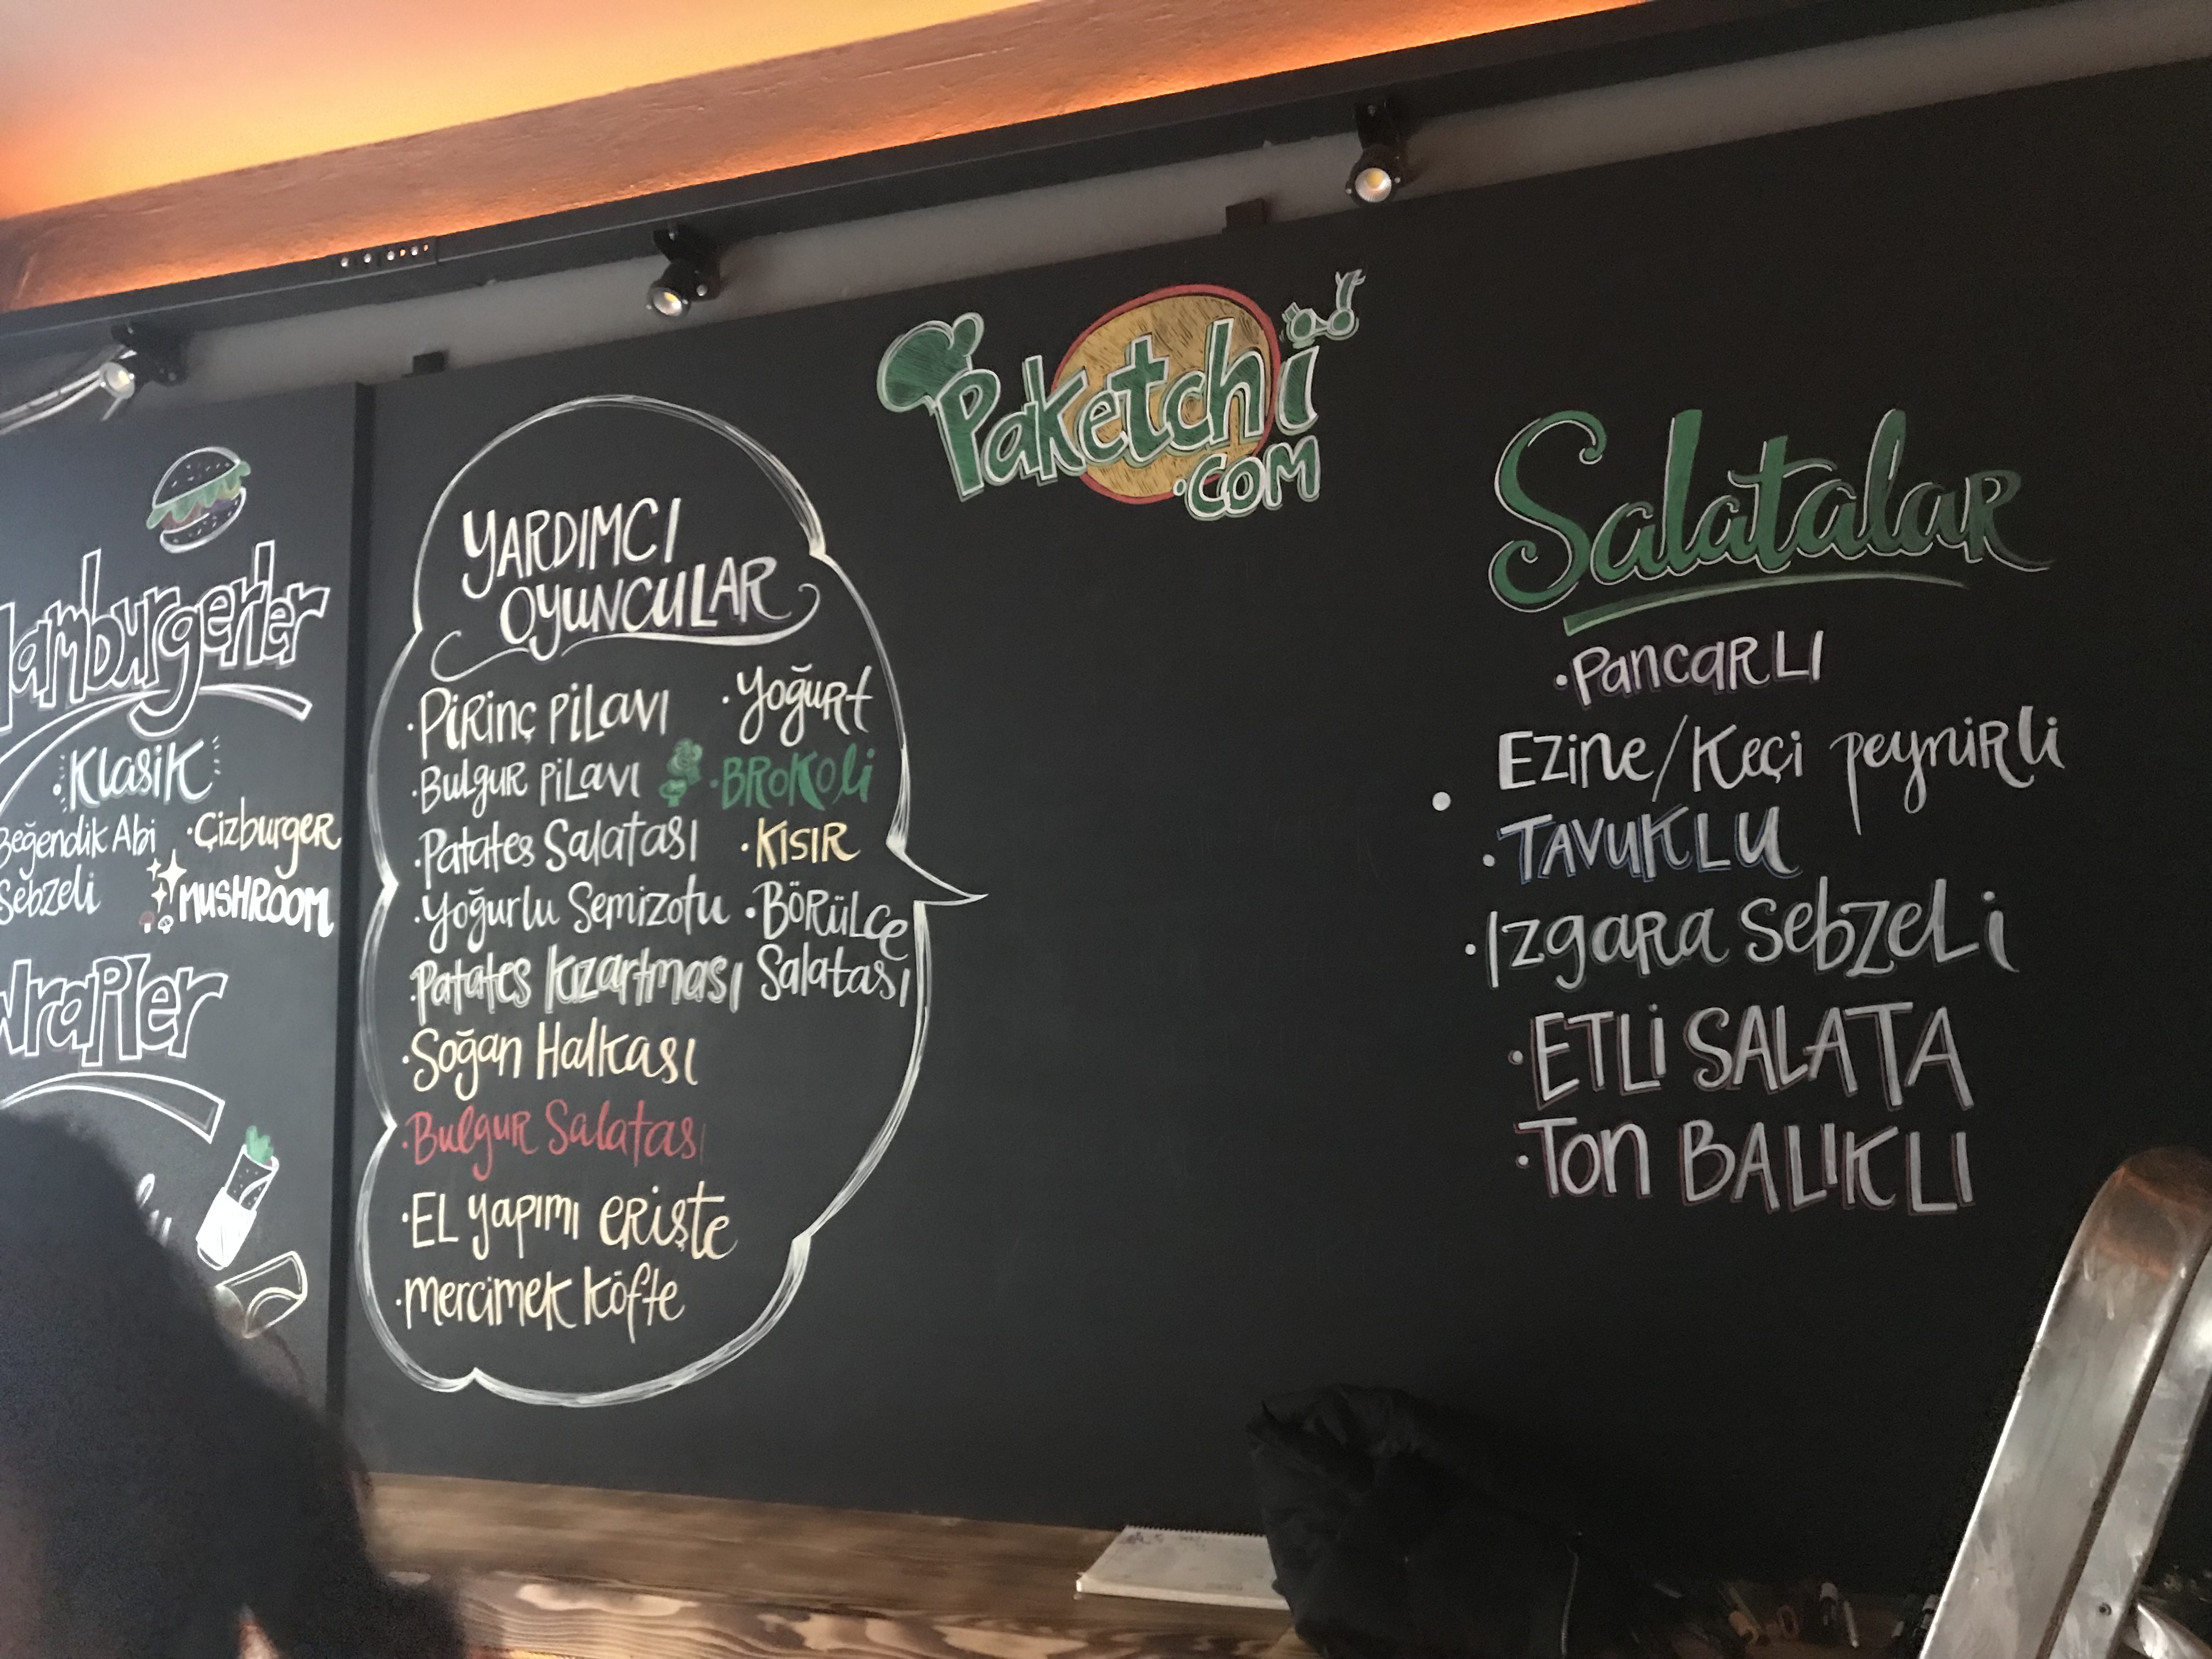 Hamburgerler
·Klasik
Beğendik Abi ·Çizburger
Sebzeli MUSHROOM
Wrapler
YARDIMCI
OYUNCULAR
·Pirinç Pilavı
·Bulgur Pilavı
·Patates Salatası
·Yoğurlu Semizotu
·Patates Kızartması
·Soğan Halkası
·Bulgur Salatası
·El yapımı erişte
·mercimek köfte
·Yoğurt
·BROKOLİ
·KISIR
·BÖRÜLCe
Salatası
Paketchi
.COM
Salatalar
·PancarLI
Ezine/Keçi peynirli
·TAVUKLU
·Izgara Sebzeli
·ETLİ SALATA
·Ton BALIKLI